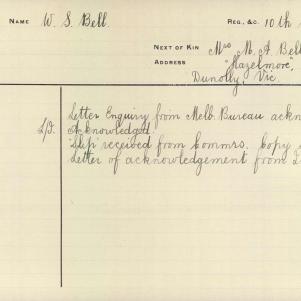 NAME W. S. Bell. REG., &C. 10th
NEXT OF KIN Mrs M. A. Bell
ADDRESS "Hazelmore",
Dunolly, Vic.
Letter Enquiry from Melb. Bureau ackn
Acknowledged.
"Slip" received from Commrs. Copy
Letter of acknowledgement from